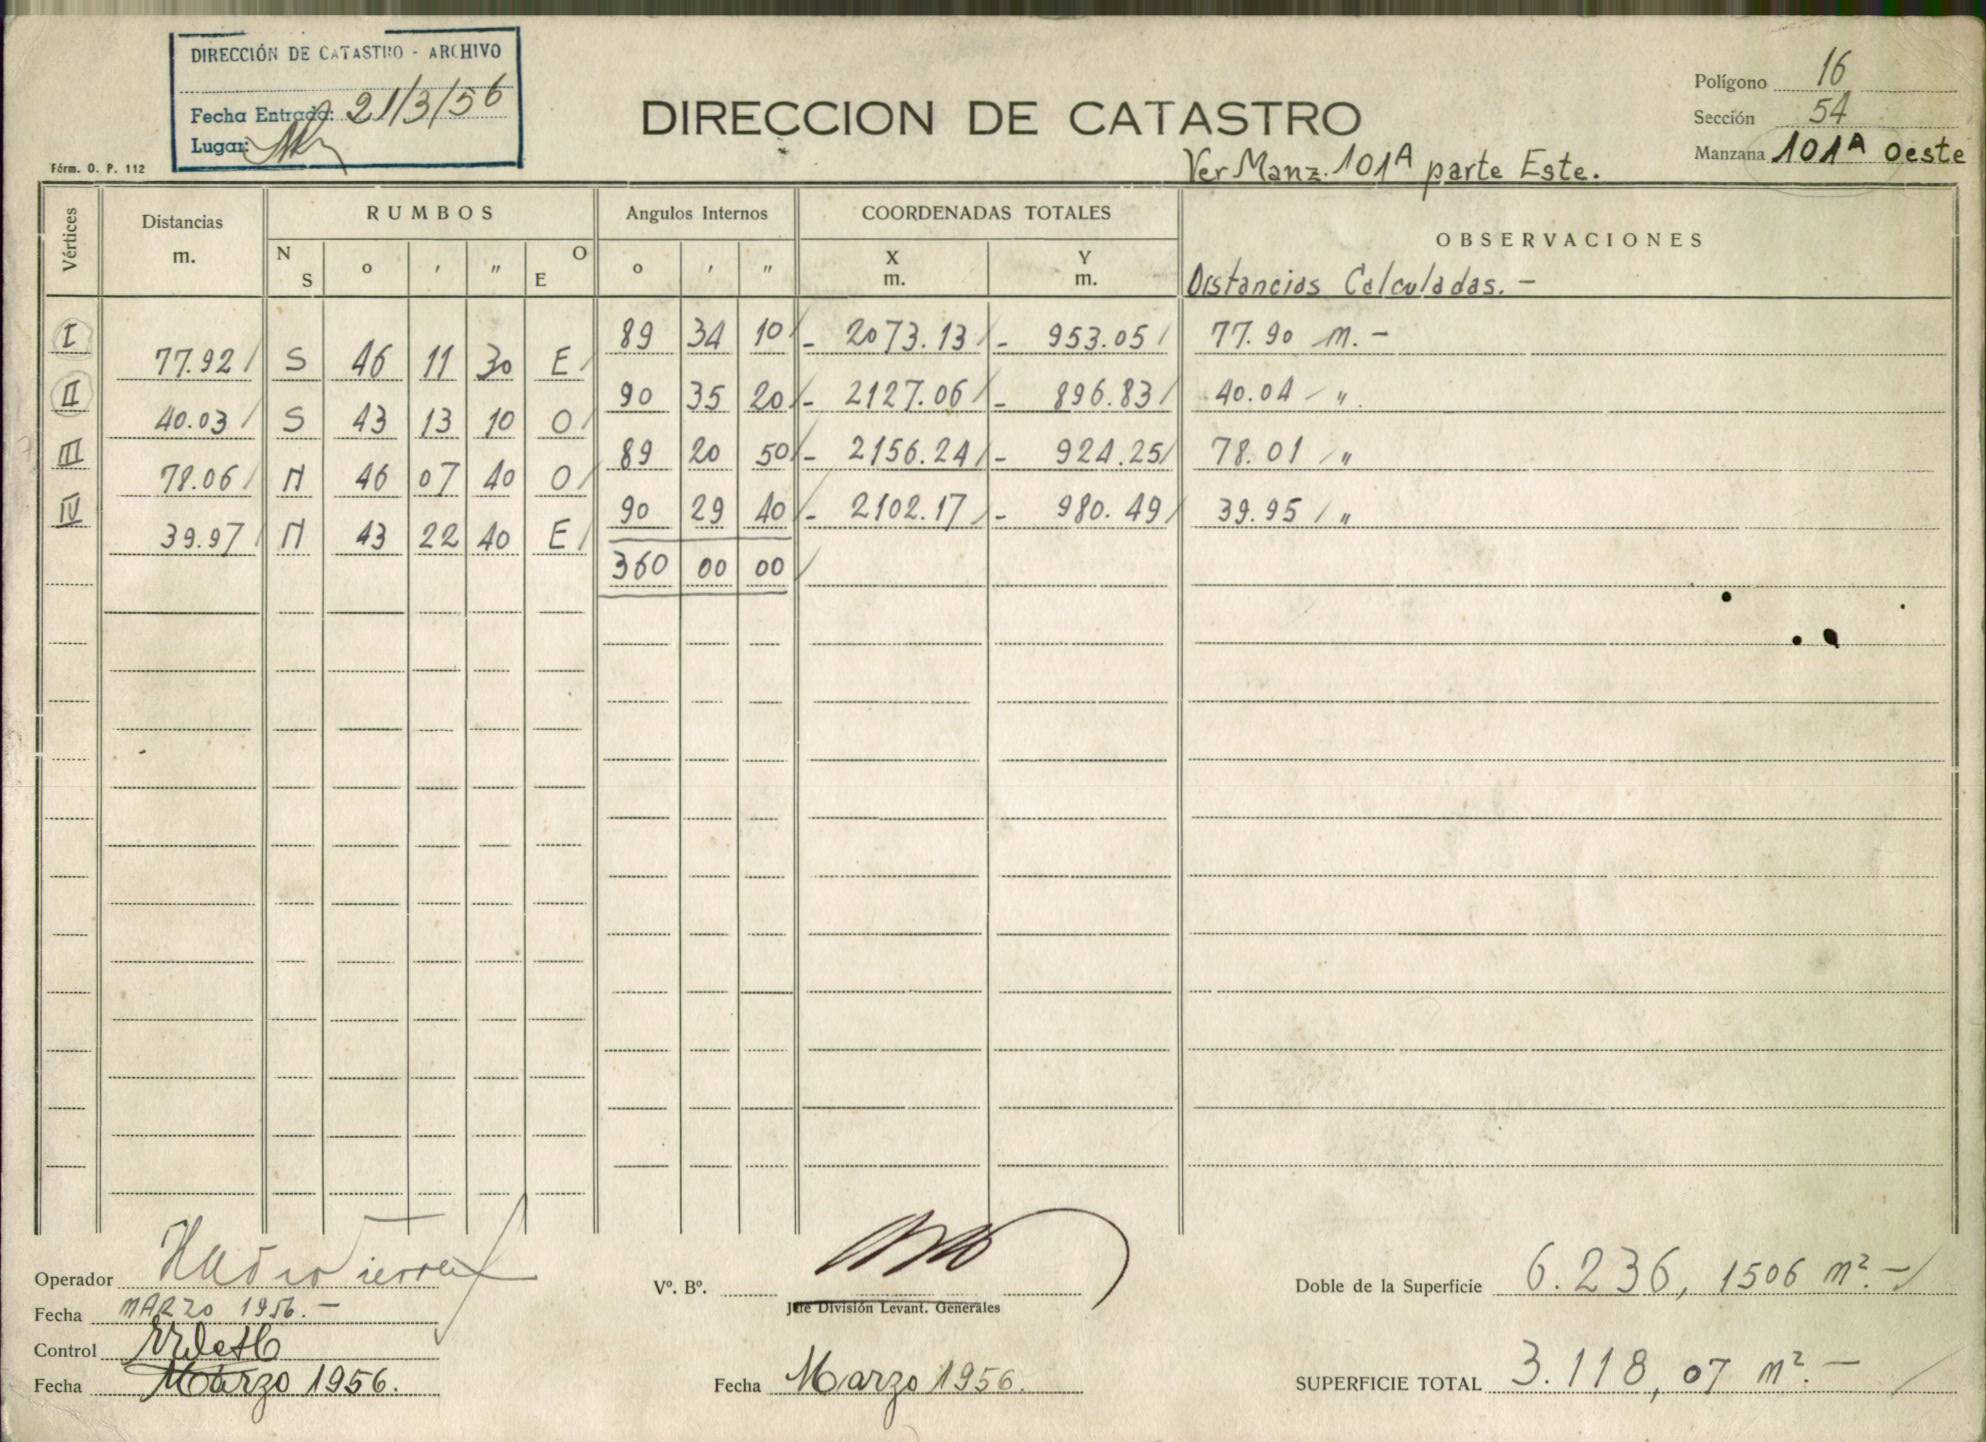 DIRECCIÓN DE CATASTRO - ARCHIVO
Fecha Entrada: 21/3/56
Lugar:
Fórm. O. P. 112
DIRECCION DE CATASTRO
Ver Manz. 101A parte Este.
Polígono 16
Sección 54
Manzana 101A Oeste
Vértices
Distancias
m.
RUMBOS
N S o ' " O E
Angulos Internos
o ' "
COORDENADAS TOTALES
X
m.
Y
m.
OBSERVACIONES
Distancias Calculadas. -
I 89 34 10 - 2073.13 - 953.05 77.90 m. -
77.92 S 46 11 30 E
II 90 35 20 - 2127.06 - 896.83 40.04 "
40.03 S 43 13 10 O
III 89 20 50 - 2156.24 - 924.25 78.01 "
78.06 N 46 07 40 O
IV 90 29 40 - 2102.17 - 980.49 39.95 "
39.97 N 43 22 40 E
360 00 00
Operador
Fecha MARZO 1956. -
Control
Fecha Marzo 1956.
Vº. Bº.
Jefe División Levant. Generales
Fecha Marzo 1956.
Doble de la Superficie 6.236,1506 m². -
SUPERFICIE TOTAL 3.118,07 m². -